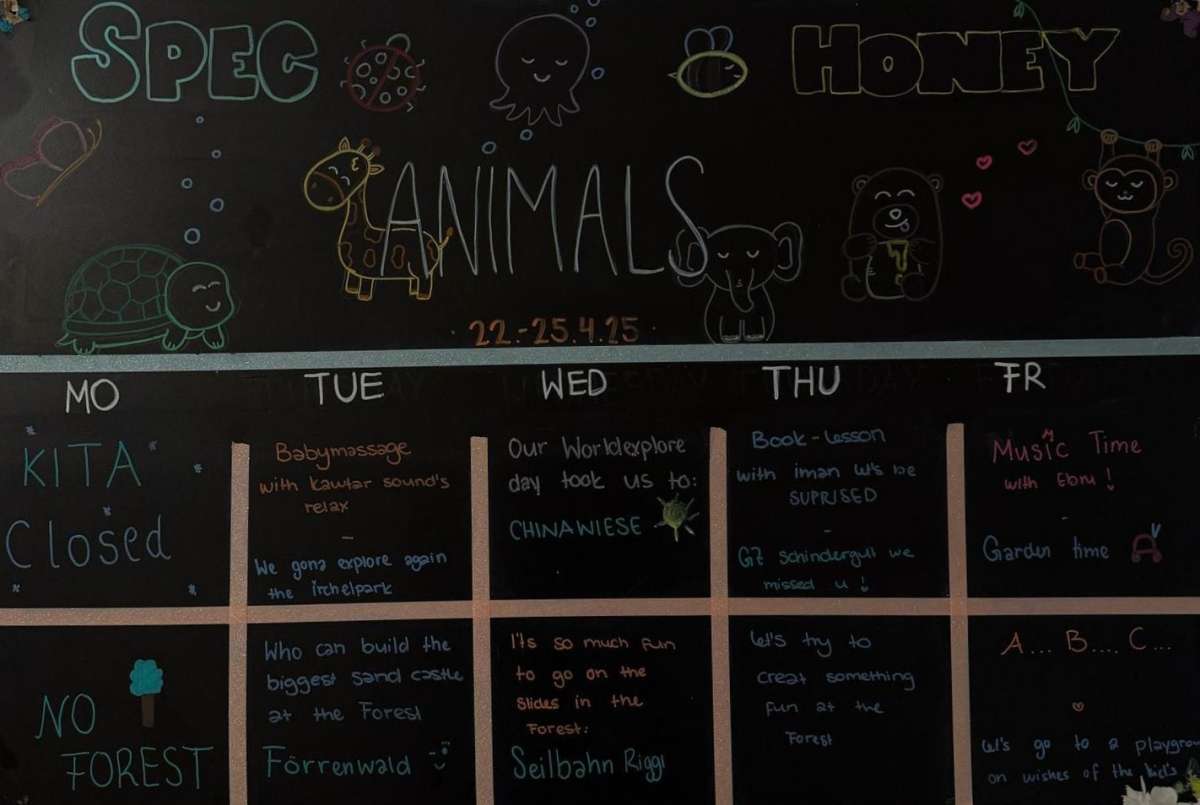 SPEC
HONEY
ANIMALS
22.-25.4.25
MO
TUE
WED
THU
FR
KITA
Closed
Babymassage
with kawtar sound's
relax
-
We gona explore again
the irchelpark
Our Worldexplore
day took us to:
CHINAWIESE
Book-lesson
with iman let's be
SUPRISED
-
GZ schindergut we
missed u!
Music Time
with Ebru!
-
Garden time
NO
FOREST
Who can build the
biggest sand castle
at the Forest
Förrenwald
It's so much fun
to go on the
slides in the
Forest:
Seilbahn Riggi
let's try to
creat something
fun at the
Forest
A... B.... C...
let's go to a playgroun
on wishes of the kid's